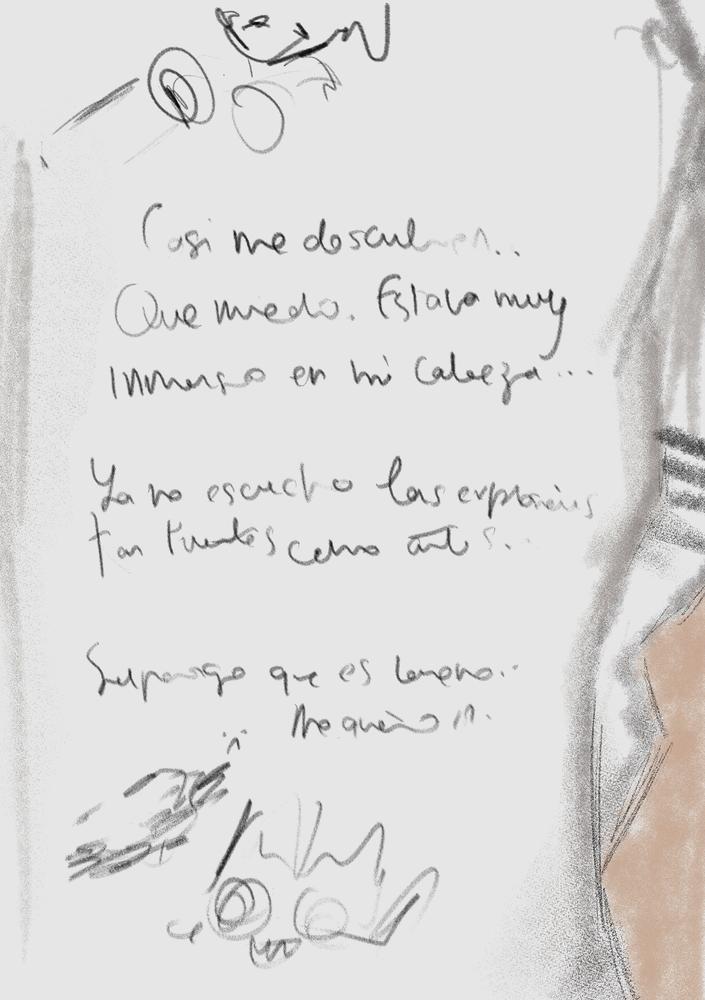 Casi me descubren..
Que miedo. Estava muy
inmerso en mi cabeza...
Ya no escucho las explosiones
tan fuertes como antes..
Supongo que es bueno..